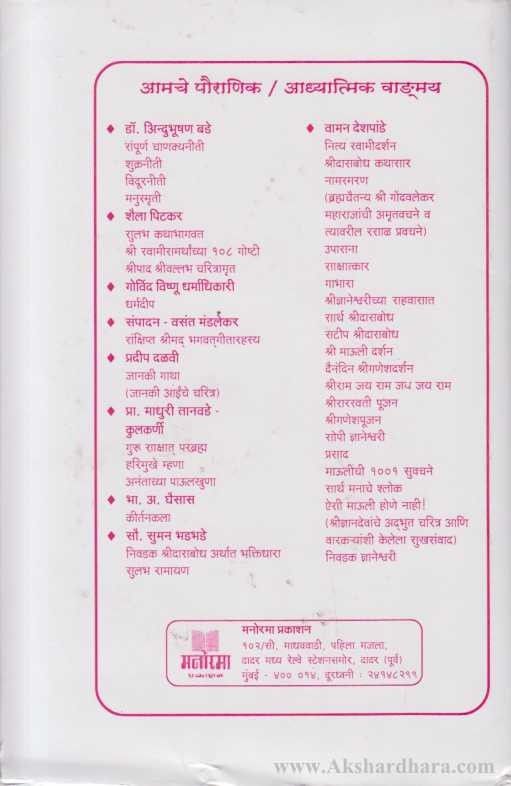 आमचे पौराणिक / आध्यात्मिक वाङ्मय
♦ डॉ. अिन्दुभूषण बडे
संपूर्ण चाणक्यनीती
शुक्रनीती
विदूरनीती
मनुस्मृती
♦ शैला पिटकर
सुलभ कथाभागवत
श्री स्वामीसमर्थांच्या १०८ गोष्टी
श्रीपाद श्रीवल्लभ चरित्रामृत
♦ गोविंद विष्णू धर्माधिकारी
धर्मदीप
♦ संपादन - वसंत मंडलेकर
संक्षिप्त श्रीमद् भगवत्‌गीतारहस्य
♦ प्रदीप दळवी
जानकी गाथा
(जानकी आईंचे चरित्र)
♦ प्रा. माधुरी तानवडे -
कुलकर्णी
गुरू साक्षात परब्रह्म
हरिमुखे म्हणा
अनंताच्या पाऊलखुणा
♦ भा. अ. घैसास
कीर्तनकला
♦ सौ. सुमन भडभडे
निवडक श्रीदासबोध अर्थात भक्तिधारा
सुलभ रामायण
♦ वामन देशपांडे
नित्य स्वामीदर्शन
श्रीदासबोध कथासार
नामस्मरण
(ब्रह्मचैतन्य श्री गोंदवलेकर
महाराजांची अमृतवचने व
त्यावरील रसाळ प्रवचने)
उपासना
साक्षात्कार
गाभारा
श्रीज्ञानेश्वरीच्या सहवासात
सार्थ श्रीदासबोध
सटीप श्रीदासबोध
श्री माऊली दर्शन
दैनंदिन श्रीगणेशदर्शन
श्रीराम जय राम जय जय राम
श्रीसरस्वती पूजन
श्रीगणेशपूजन
सोपी ज्ञानेश्वरी
प्रसाद
माऊलीची १००१ सुवचने
सार्थ मनाचे श्लोक
ऐसी माऊली होणे नाही!
(श्रीज्ञानदेवांचे अद्‌भुत चरित्र आणि
वारकऱ्यांशी केलेला सुखसंवाद)
निवडक ज्ञानेश्वरी
मनोरमा
प्रकाशन
मनोरमा प्रकाशन
१०२/सी, माधववाडी, पहिला मजला,
दादर मध्य रेल्वे स्टेशनसमोर, दादर (पूर्व)
मुंबई - ४०० ०१४, दूरध्वनी : २४१४८२९९
www.Akshardhara.com